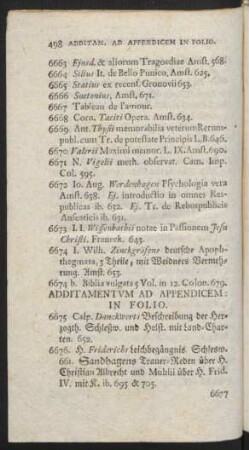 498 ADDITAM. AD APPENDICEM IN FOLIO.
6663 Ejusd. & aliorum Tragoediae Amst. 568.
6664 Silius It. de Bello Punico, Amst. 625,
6665 Statius ex recens. Gronovii 653.
6666 Suetonius, Amst. 671.
6667 Tableau de l'amour.
6668 Corn. Taciti Opera. Amst. 634.
6669 Ant. Thysii memorabilia veterum Rerum-
publ. cum Tr. de potestate Principis L.B. 646.
6670 Valerii Maximi minor. L. IX. Amst. 690.
6671 N. Vigelii meth. observat. Cam. Imp.
Col. 595.
6672 Io. Aug. Werdenhagen Psychologia vera
Amst. 658. Ej. introductio in omnes Res-
publicas ib. 632. Ej. Tr. de Rebuspublicis
Anseaticis ib. 631.
6673 I. I. Wissenbachii notae in Passionem Jesu
Christi. Franeck. 643.
6674 I. Wilh. Zinckgrefens deutsche Apoph-
thegmata, 3 Theile, mit Weidners Vermeh-
rung. Amst. 653.
6674 b. Biblia vulgata 5 Vol. in 12. Colon. 679.
ADDITAMENTVM AD APPENDICEM:
IN FOLIO.
6675 Casp. Danckwerts Beschreibung der Her-
zogth. Schlesw. und Holst. mit Land-Char-
ten. 652.
6676. H. Friderichs Leichbegängnis. Schlesw.
661. Sandhagens Trauer-Reden über H.
Christian Albrecht und Muhlii über H. Frid.
IV. mit K. ib. 695 & 705.
6677